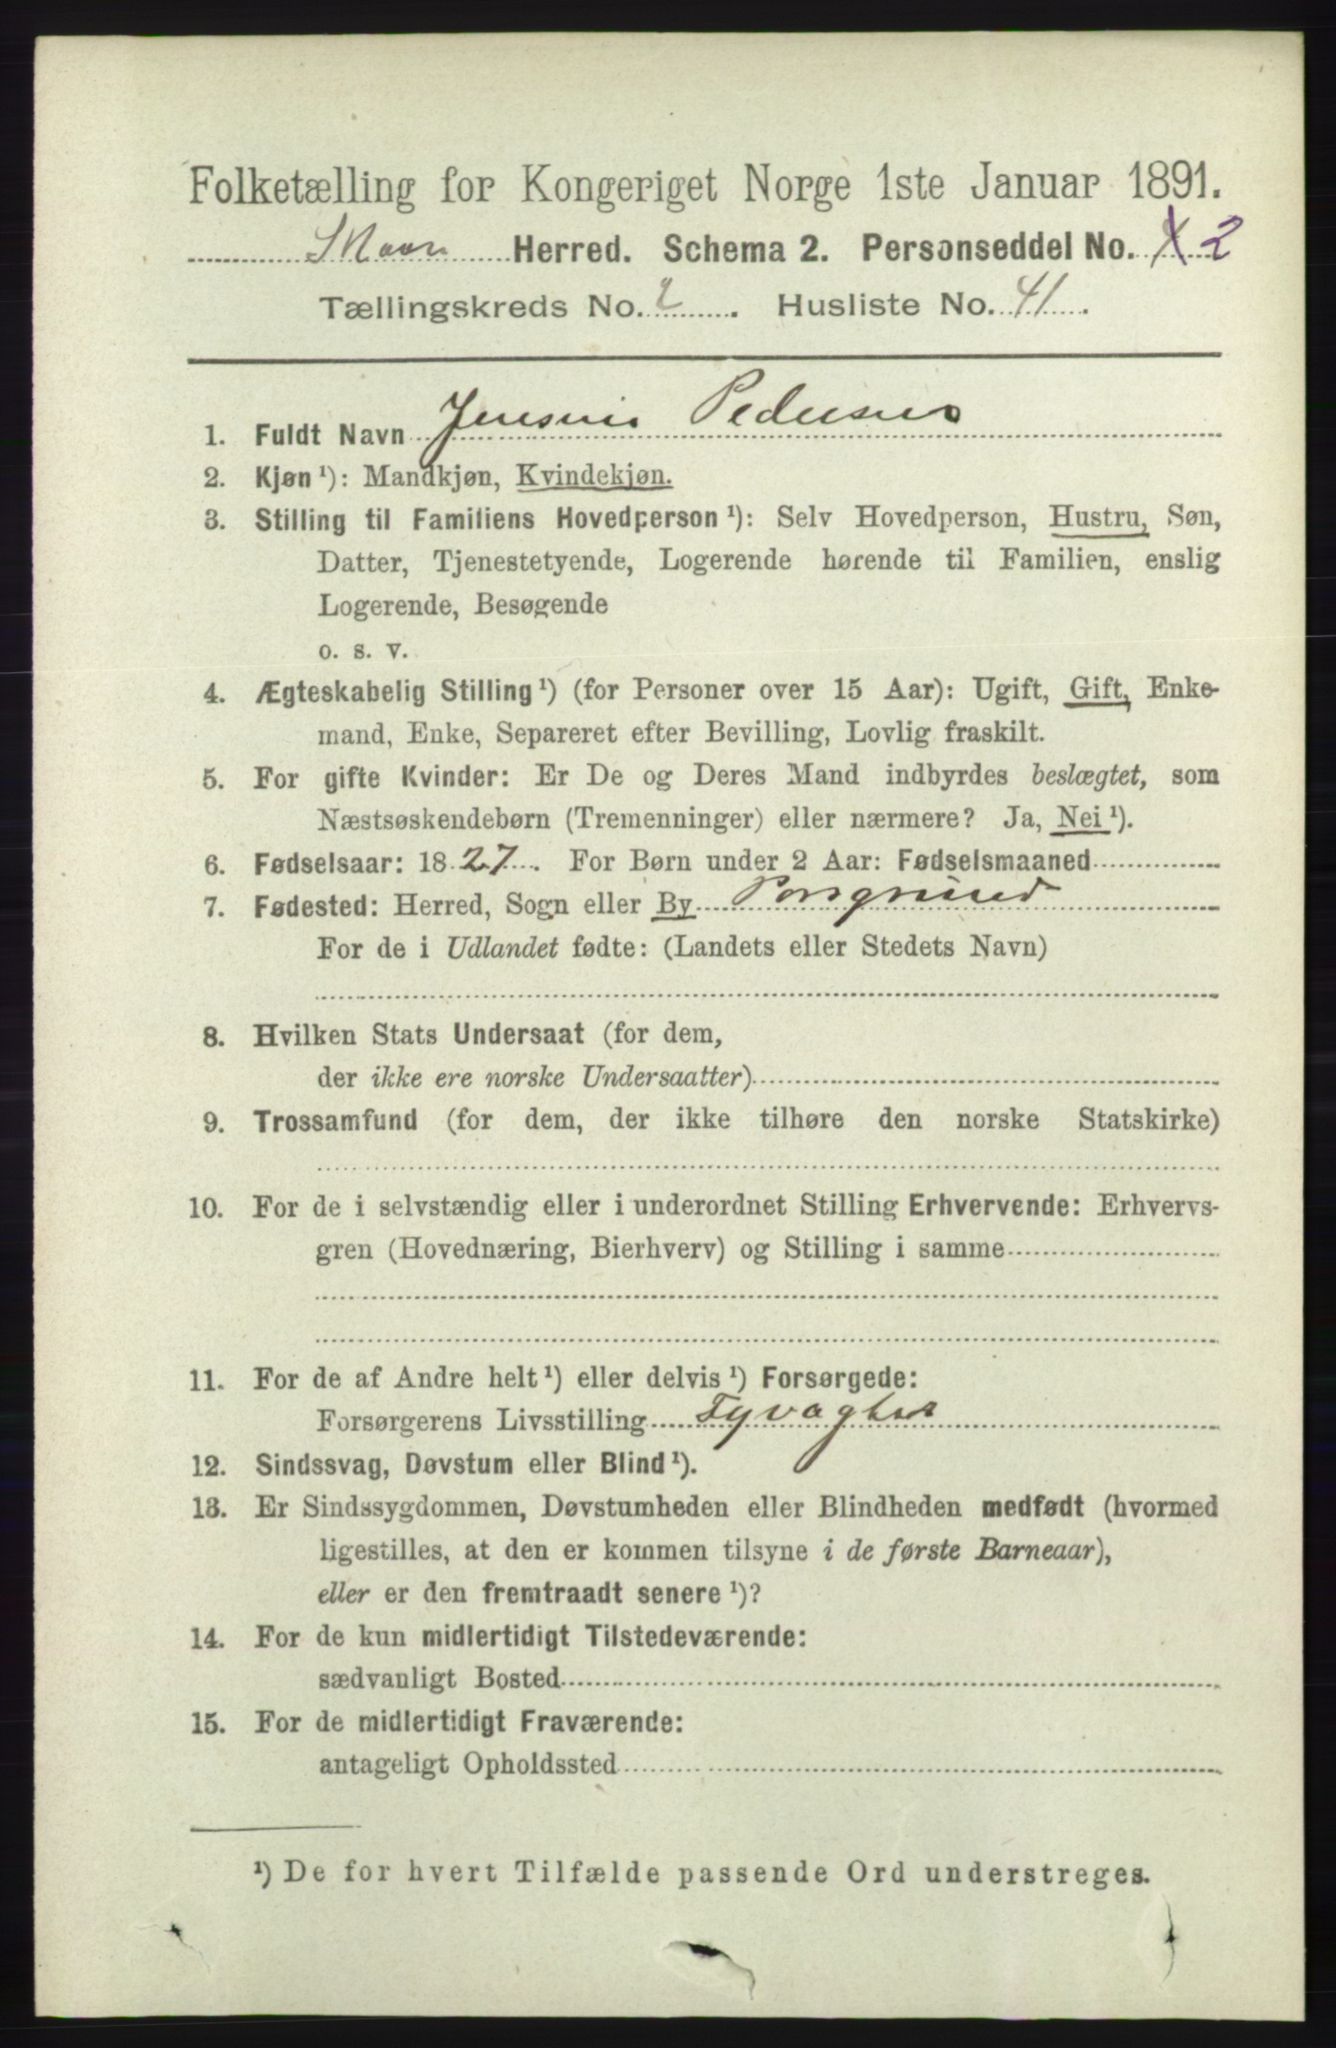 Folketælling for Kongeriget Norge 1ste Januar 1891.
Herred. Schema 2. Personseddel No. X 2
Tællingskreds No. 2. Husliste No. 41.
1. Fuldt Navn Pedersen
2. Kjøn ¹): Mandkjøn, Kvindekjøn.
3. Stilling til Familiens Hovedperson ¹): Selv Hovedperson, Hustru, Søn,
Datter, Tjenestetyende, Logerende hørende til Familien, enslig
Logerende, Besøgende
o. s. v.
4. Ægteskabelig Stilling ¹) (for Personer over 15 Aar): Ugift, Gift, Enke-
mand, Enke, Separeret efter Bevilling, Lovlig fraskilt.
5. For gifte Kvinder: Er De og Deres Mand indbyrdes beslægtet, som
Næstsøskendebørn (Tremenninger) eller nærmere? Ja, Nei ¹).
6. Fødselsaar: 18 27. For Børn under 2 Aar: Fødselsmaaned
7. Fødested: Herred, Sogn eller By Porsgrund
For de i Udlandet fødte: (Landets eller Stedets Navn)
8. Hvilken Stats Undersaat (for dem,
der ikke ere norske Undersaatter)
9. Trossamfund (for dem, der ikke tilhøre den norske Statskirke)
10. For de i selvstændig eller i underordnet Stilling Erhvervende: Erhvervs-
gren (Hovednæring, Bierhverv) og Stilling i samme
11. For de af Andre helt ¹) eller delvis ¹) Forsørgede:
Forsørgerens Livsstilling Fyrvogter
12. Sindssvag, Døvstum eller Blind ¹).
13. Er Sindssygdommen, Døvstumheden eller Blindheden medfødt (hvormed
ligestilles, at den er kommen tilsyne i de første Barneaar),
eller er den fremtraadt senere ¹)?
14. For de kun midlertidigt Tilstedeværende:
sædvanligt Bosted
15. For de midlertidigt Fraværende:
antageligt Opholdssted
¹) De for hvert Tilfælde passende Ord understreges.